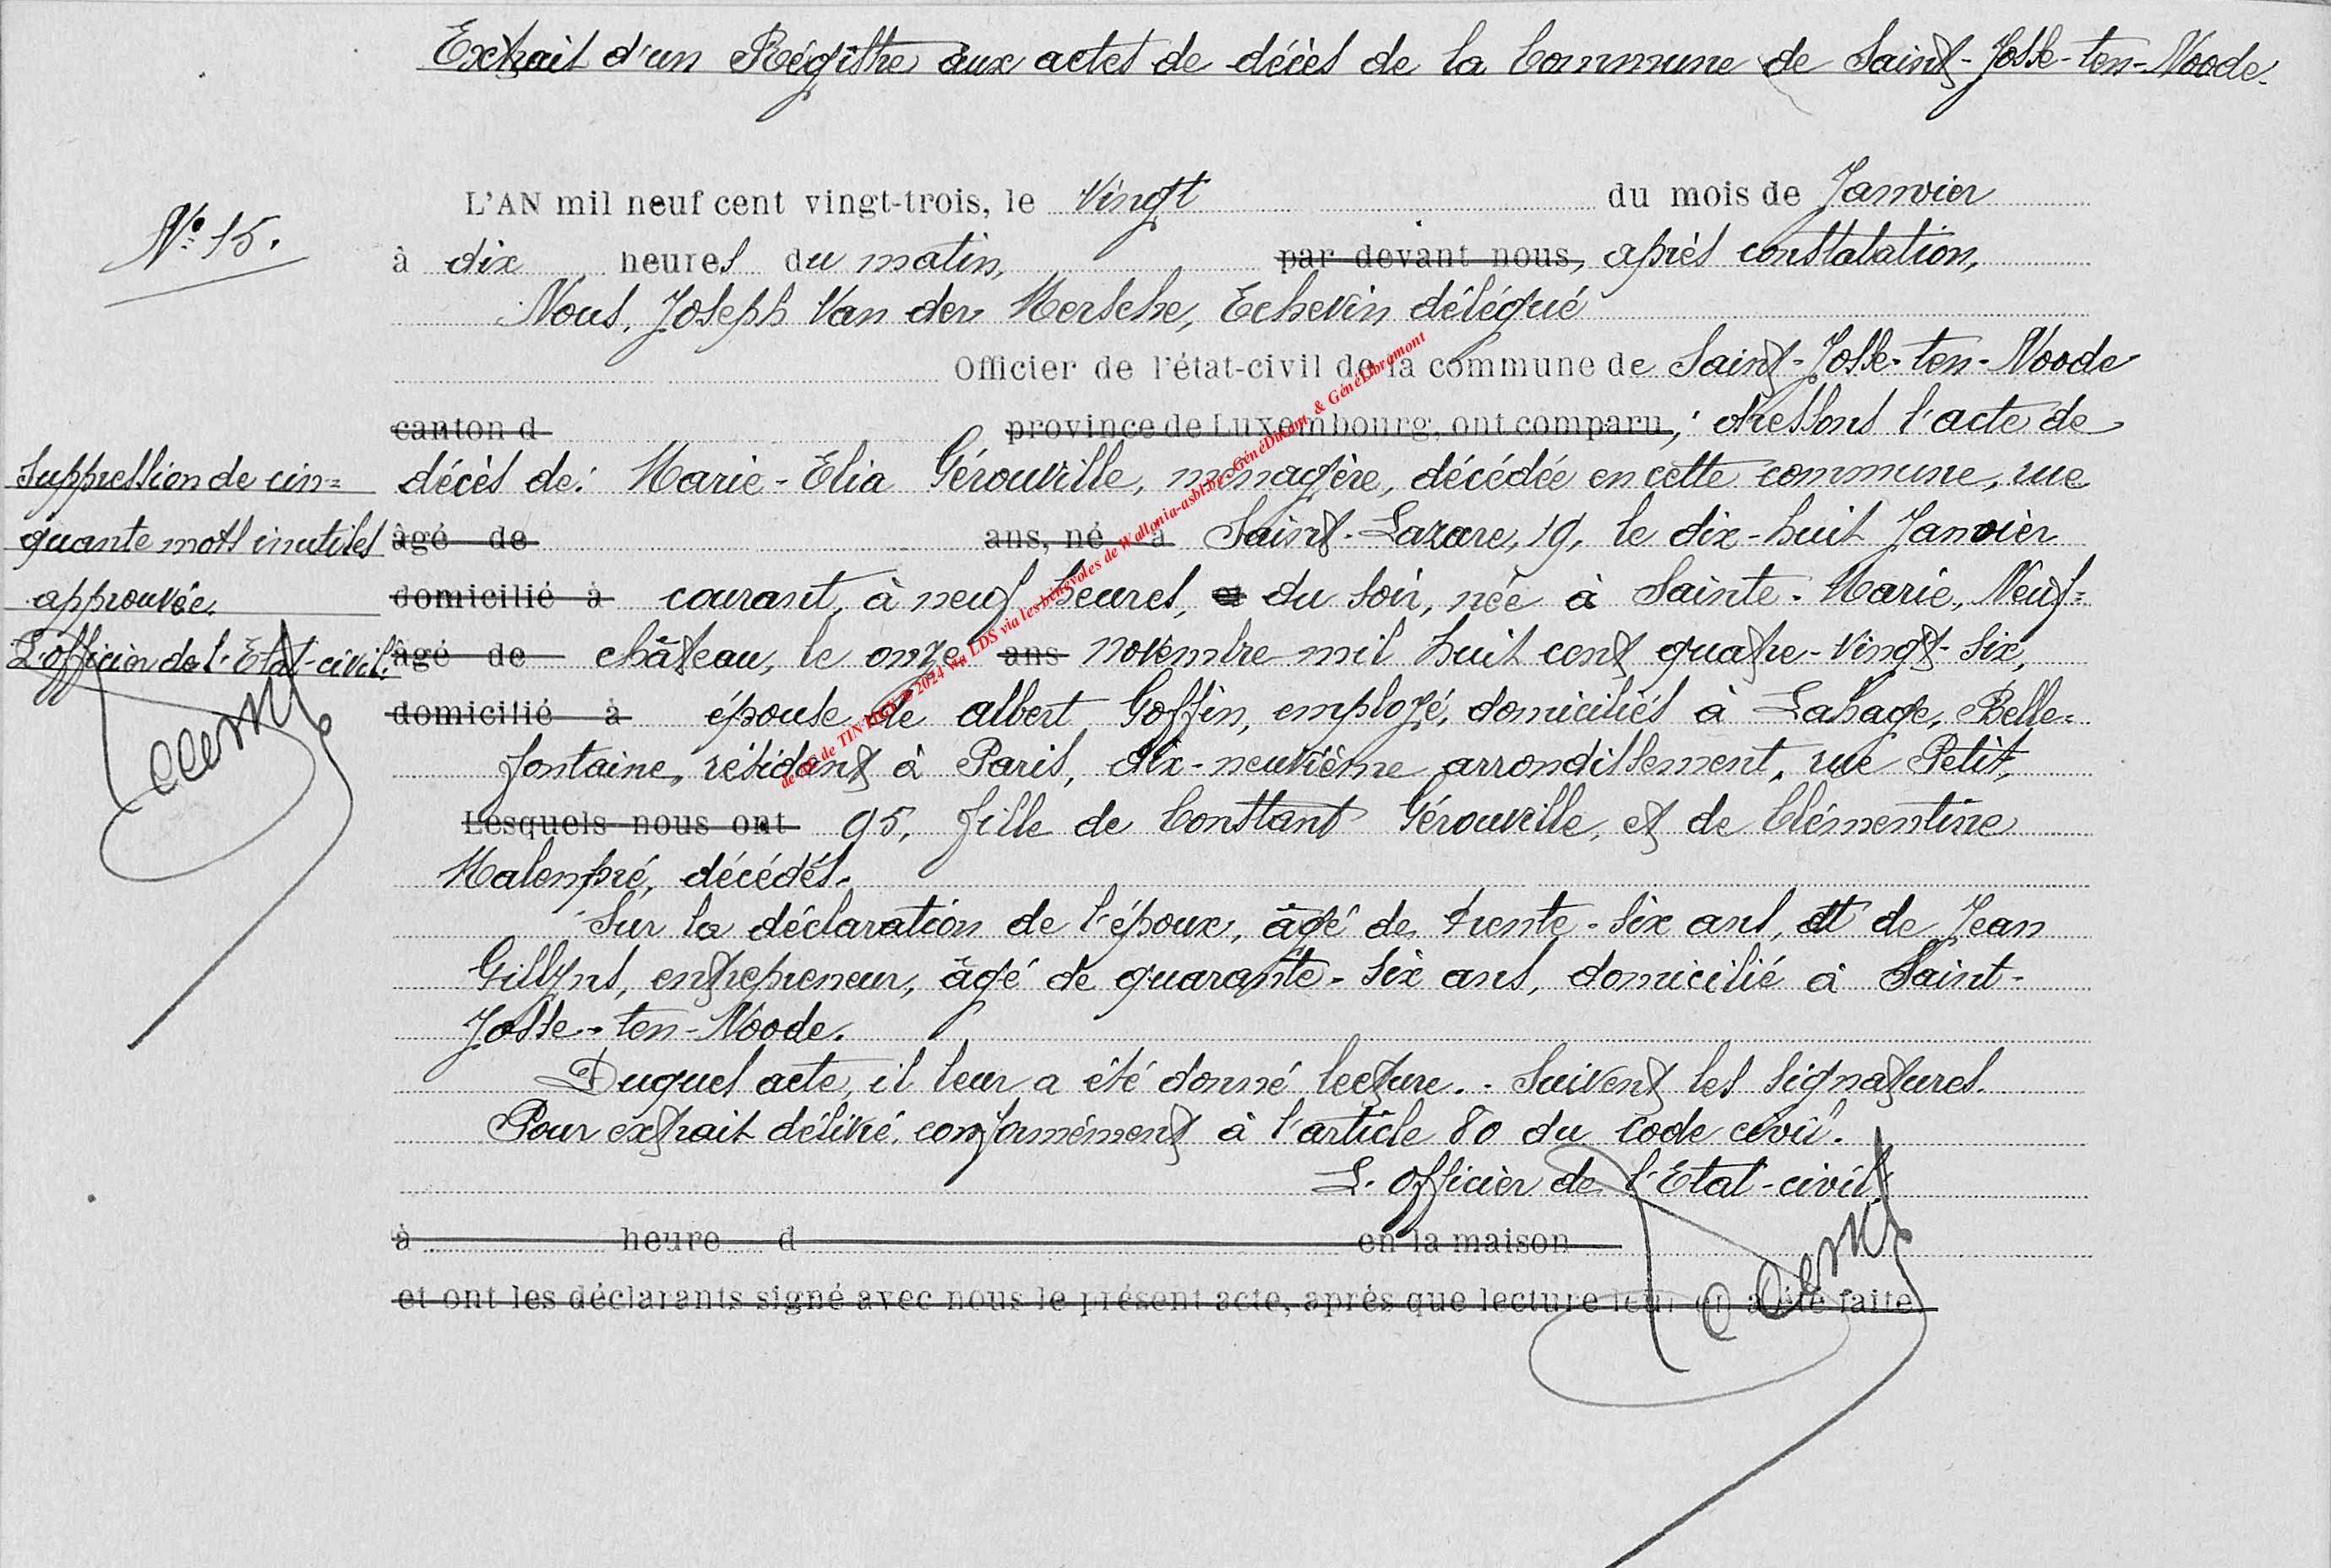 Extrait d'un Régistre aux actes de décès de la Commune de Saint-Josse-ten-Noode.
N° 15.
L'AN mil neuf cent vingt-trois, le Vingt du mois de Janvier
à dix heures du matin, par devant nous, après constatation,
Nous, Joseph Van der Mersche, Echevin délégué
Officier de l'état-civil de la commune de Saint-Josse-ten-Noode
canton d province de Luxembourg, ont comparu, ; dressons l'acte de
décès de: Marie-Elia Gérouville, ménagère, décédée en cette commune, rue
âgé de ans, né à Saint-Lazare, 19, le dix-huit Janvier
domicilié à courant, à neuf heures, et du soir, née à Sainte-Marie, Neuf=
âgé de château, le onze ans novembre mil huit cent quatre-vingt-six,
domicilié à épouse de Albert Goffin, employé, domiciliés à Lahage, Belle=
fontaine, résidant à Paris, dix-neuvième arrondissement, rue Petit,
Lesquels nous ont 95, fille de Constant Gérouville, et de Clémentine
Malempré, décédés.
Sur la déclaration de l'époux, âgé de trente-six ans, et de Jean
Gillyns, entrepreneur, âgé de quarante-six ans, domicilié à Saint-
Josse-ten-Noode.
Duquel acte, il leur a été donné lecture.- Suivent les signatures.
Pour extrait délivré, conformément à l'article 80 du code civil.
L'officier de l'Etat-civil,
à heure d en la maison
et ont les déclarants signé avec nous le présent acte, après que lecture leur en a été faite.
Suppression de cin=
quante mots inutiles
approuvée.
L'officier de l'Etat-civil,